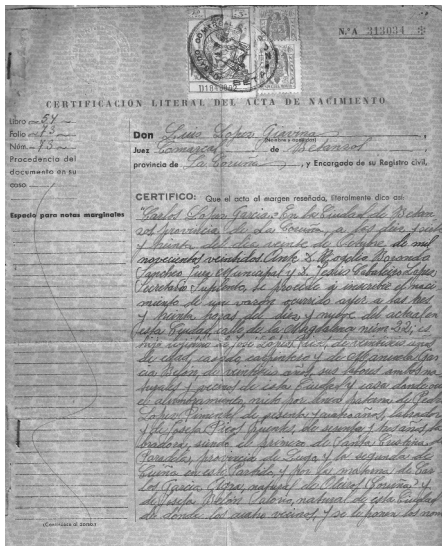 N.º A 313034
CERTIFICACION LITERAL DEL ACTA DE NACIMIENTO
Libro 54
Folio 73
Núm. 73
Procedencia del
documento en su
caso
Espacio para notas marginales
(Continúa al dorso)
Don Luis Lopez
(Nombre y apellidos)
Juez Comarcal de Betanzos
provincia de La Coruña, y Encargado de su Registro civil,
CERTIFICO: Que el acta al margen reseñada, literalmente dice así:
Carlos Lopez Garcia. En la Ciudad de Betan
zos provincia de La Coruña, a las diez y siete
y treinta del dia veinte de Octubre de mil
novecientos veintidos ante D.
Sanchez Juez Municipal y D. Jesús Lopez
Secretario Suplente, se procede a inscribir el naci
miento de un varón ocurrido ayer a las tres
y treinta horas del diez y nueve del actual en
esta Ciudad, calle de la Magdalena núm. 22, es
hijo legitimo de José Lopez de veintiseis años
de edad, casado, carpintero y de Manuela Gar
cia Belón de años,
y vecinos de esta Ciudad y casa donde
el alumbramiento, nieto por linea paterna de Pedro
Lopez Pimentel de sesenta y cuatro años, labrador
y de Josefa Pico de sesenta y tres años la
bradora, siendo el primero de Santa
provincia de Lugo y la segunda de
en este Partido y por la materna de Car
los Garcia natural de Oleiros (Coruña)
y de Josefa Belón natural de esta Ciudad
de donde los cuatro vecinos, y se le ponen los nom